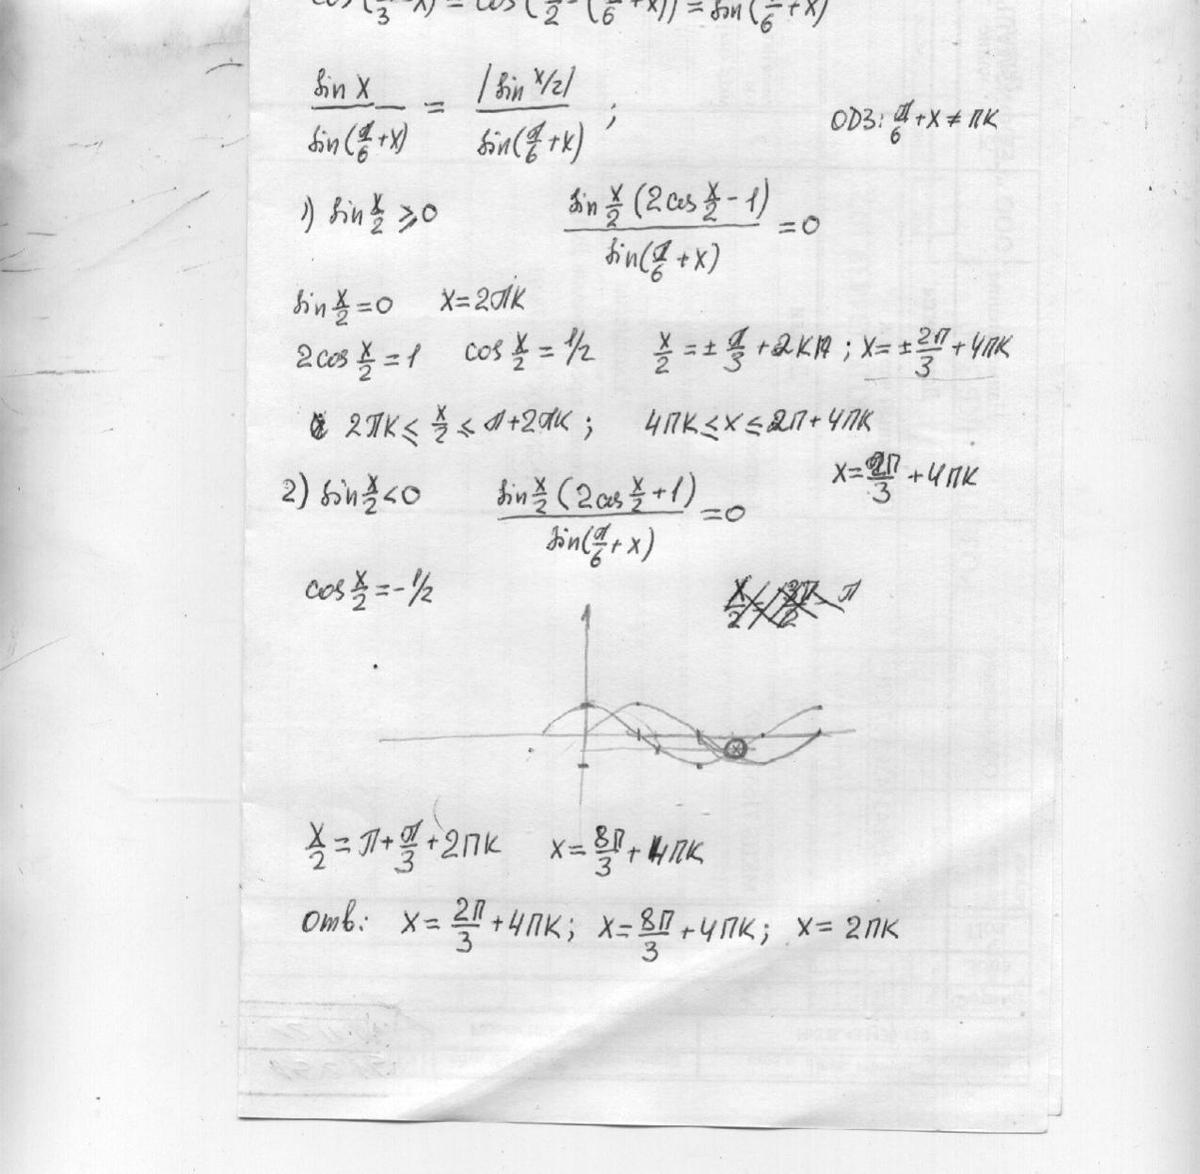 cos(π/3 - x) = cos(π/2 - (π/6 + x)) = sin(π/6 + x)
sin x / sin(π/6 + x) = |sin x/2| / sin(π/6 + x) ; ОДЗ: π/6 + x ≠ πк
1) sin x/2 ⩾ 0 sin x/2 (2cos x/2 - 1) / sin(π/6 + x) = 0
sin x/2 = 0 x = 2πк
2cos x/2 = 1 cos x/2 = 1/2 x/2 = ± π/3 + 2кπ ; x = ± 2π/3 + 4πк
2πк ≤ x/2 ≤ π + 2πк ; 4πк ≤ x ≤ 2π + 4πк
x = 2π/3 + 4πк
2) sin x/2 < 0 sin x/2 (2cos x/2 + 1) / sin(π/6 + x) = 0
cos x/2 = - 1/2
x/2 = π + π/3 + 2πк x = 8π/3 + 4πк
Отв: x = 2π/3 + 4πк ; x = 8π/3 + 4πк ; x = 2πк